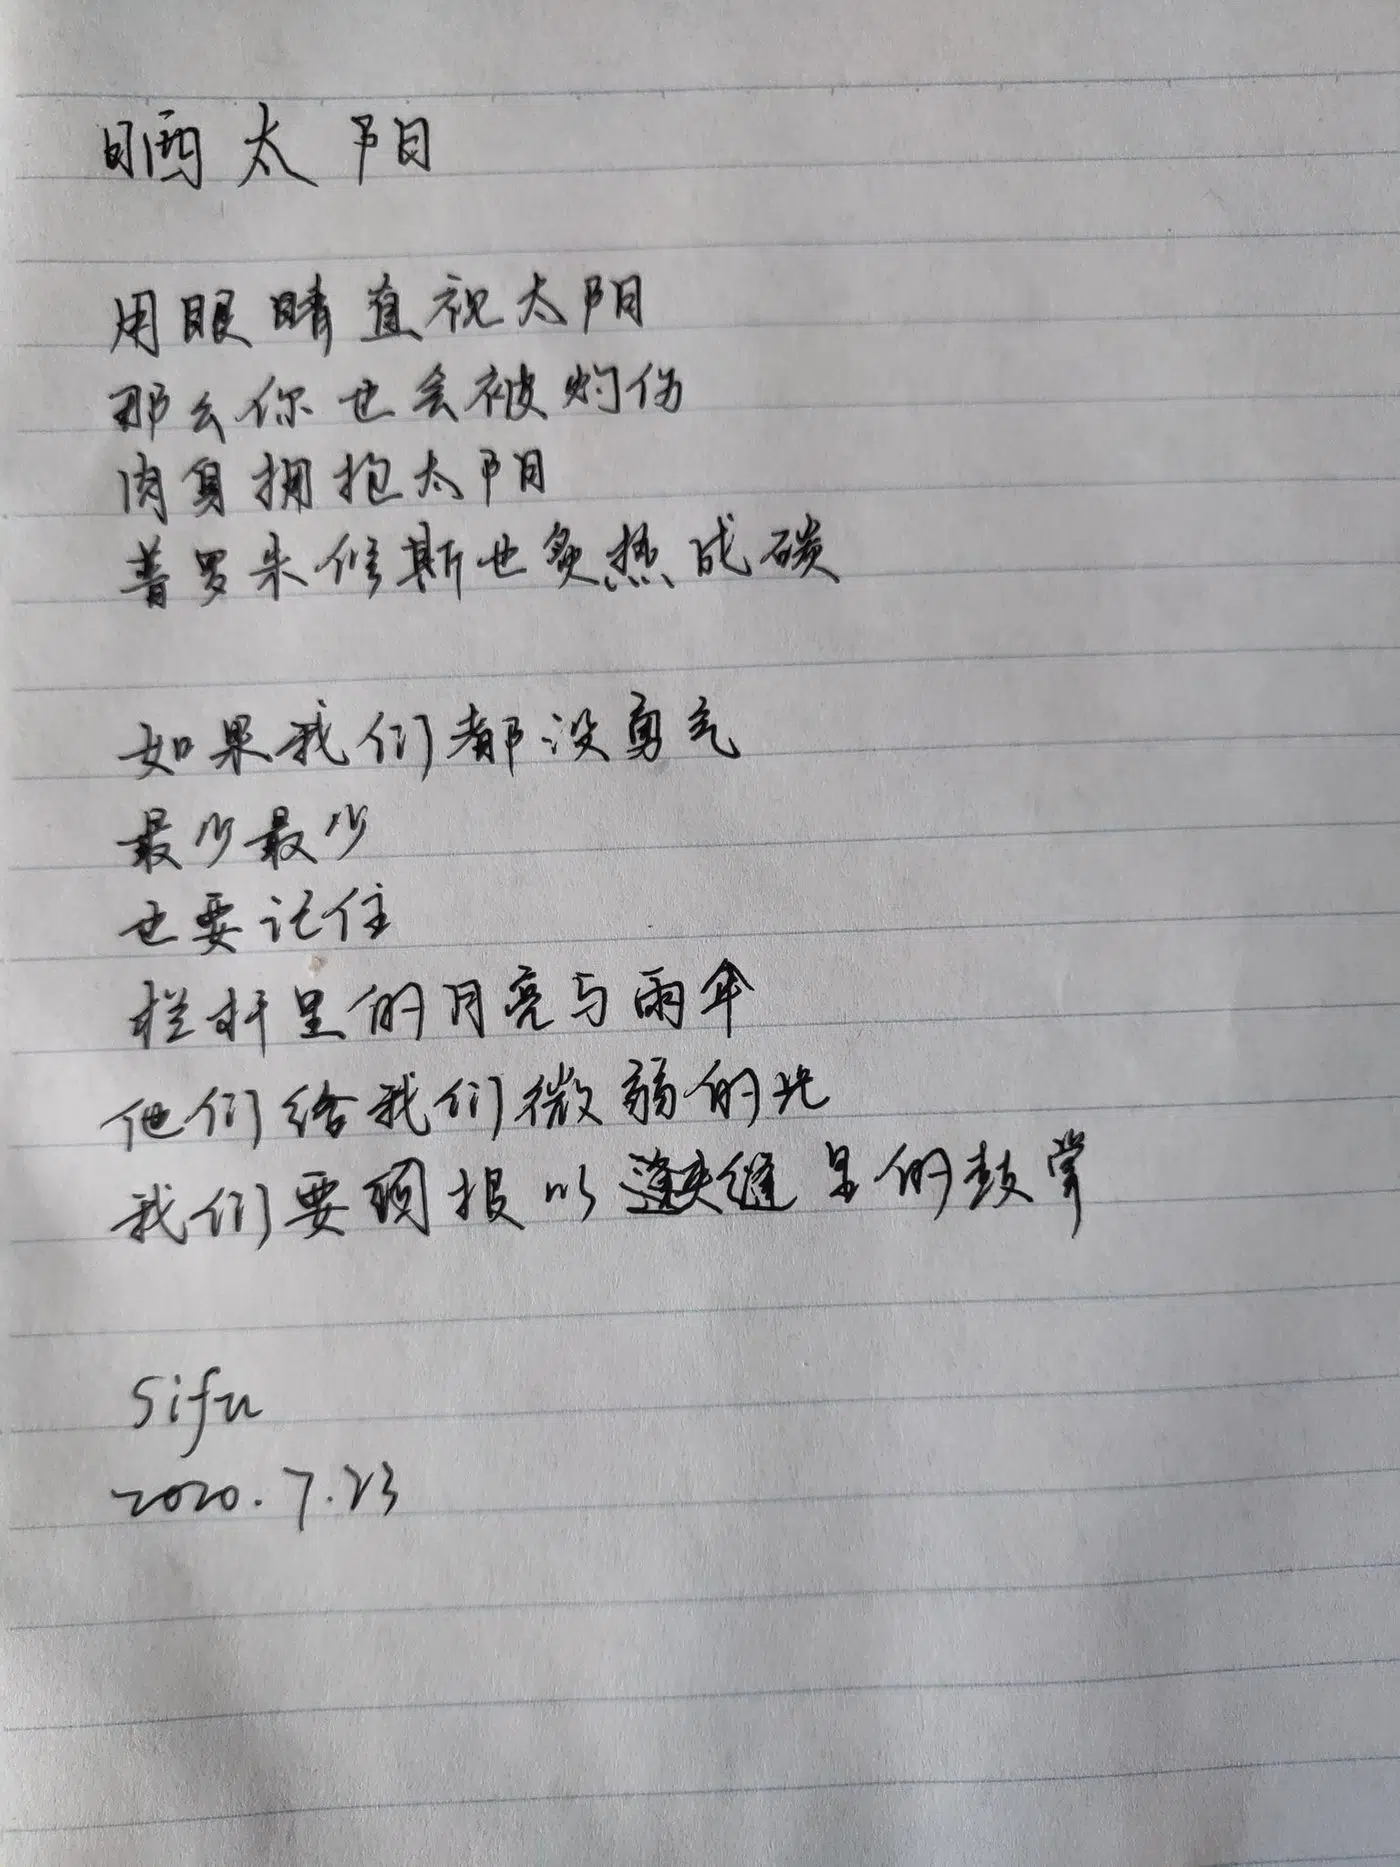 晒太阳
用眼睛直视太阳
那么你也会被灼伤
肉身拥抱太阳
普罗朱修斯也炙热成碳
如果我们都没勇气
最少最少
也要记住
栏杆里的月亮与雨伞
他们给我们微弱的光
我们要回报以夹缝里的鼓掌
Sifu
2020.7.23